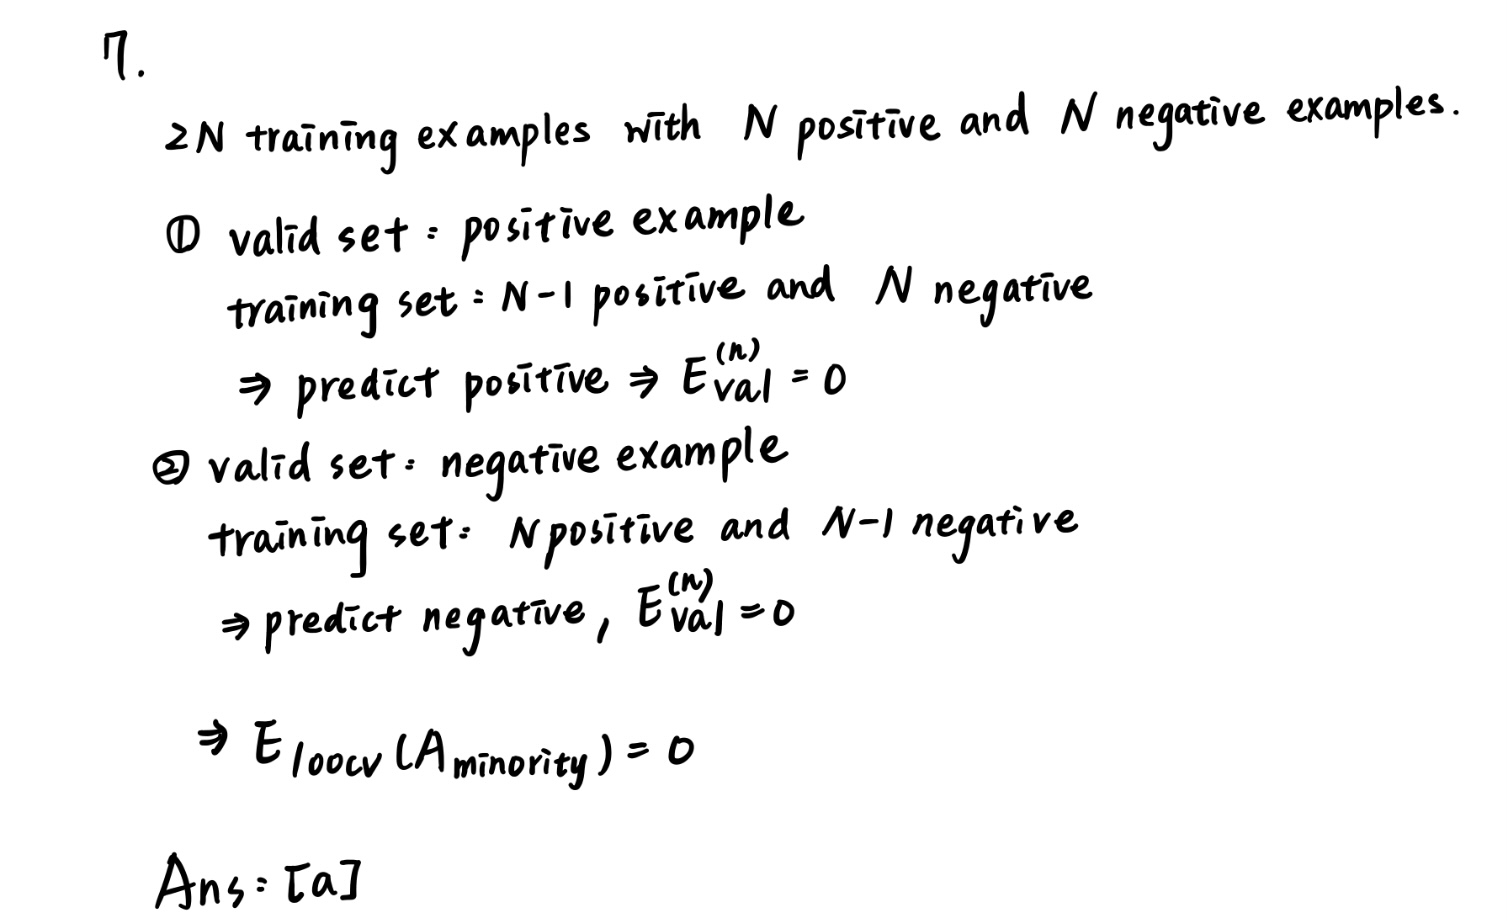 7.
2N training examples with N positive and N negative examples.
① valid set : positive example
training set : N-1 positive and N negative
⇒ predict positive ⇒ E_val^(n) = 0
② valid set : negative example
training set : N positive and N-1 negative
⇒ predict negative, E_val^(n) = 0
⇒ E_loocv (A_minority) = 0
Ans : [a]